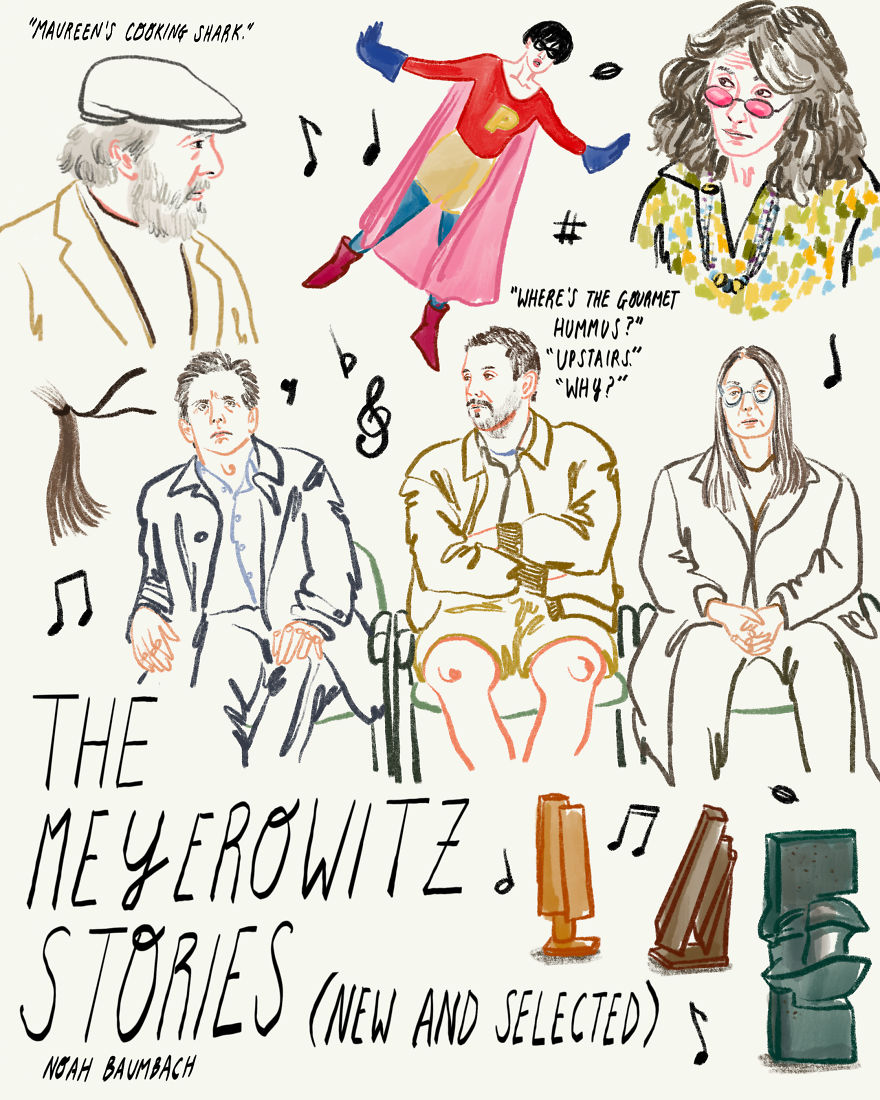 "MAUREEN'S COOKING SHARK."
P
"WHERE'S THE GOURMET
HUMMUS?"
"UPSTAIRS."
"WHY?"
THE
MEYEROWITZ
STORIES
(NEW AND SELECTED)
NOAH BAUMBACH